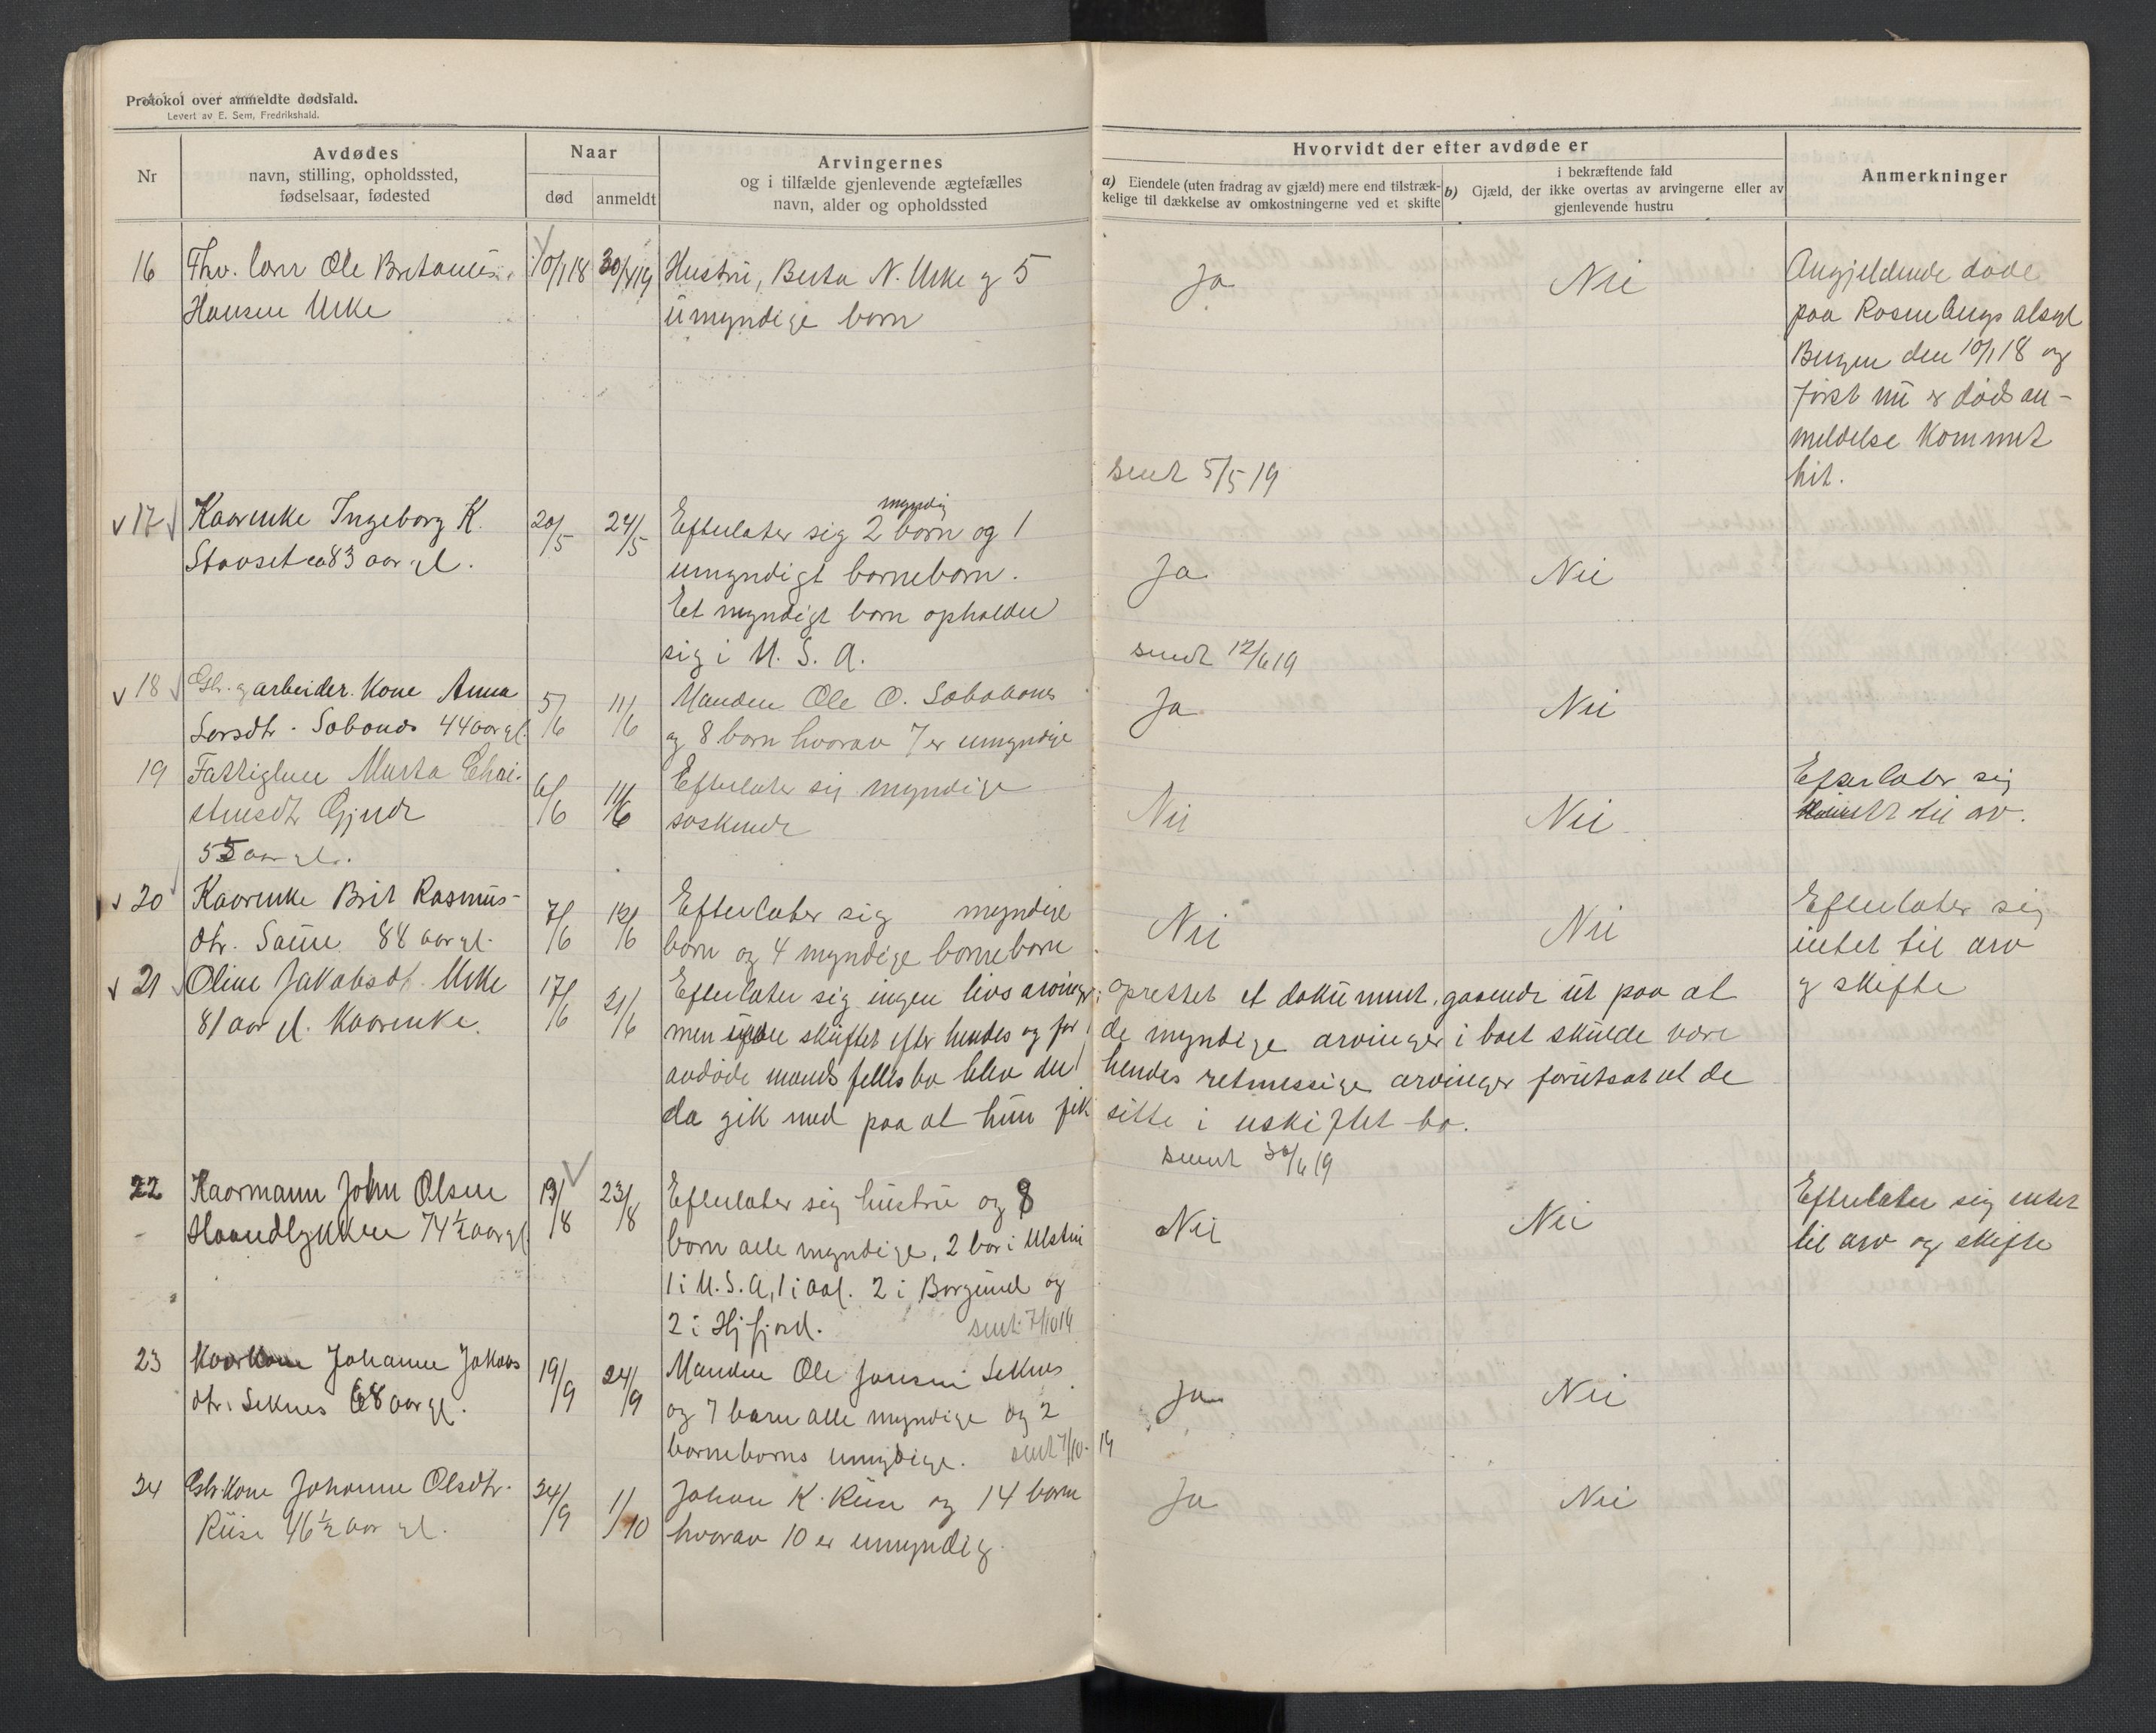 Protokol over anmeldte dødsfald.
Levert av E. Sem, Fredrikshald.
Nr
Avdødes
navn, stilling, opholdssted,
fødselsaar, fødested
Naar
død
anmeldt
Arvingernes
og i tilfælde gjenlevende ægtefælles
navn, alder og opholdssted
Hvorvidt der efter avdøde er
a) Eiendele (uten fradrag av gjæld) mere end tilstræk-
kelige til dækkelse av omkostningerne ved et skifte
i bekræftende fald
b) Gjæld, der ikke overtas av arvingerne eller av
gjenlevende hustru
Anmerkninger
16 Fhv. Ole
Hansen Urke
10/1 18 30/4 19
Hustru, Berta N. Urke og 5
umyndige børn
Ja
Nei
Angjeldende døde
paa Rosenbergs
Bergen den 10/1 18 og
først nu er dødsan-
meldelse kommet
hit.
sendt 5/5 19
17 Kaarenke Ingeborg K.
Stavset ca 83 aar gl.
20/5 24/5
myndig
Efterlater sig 2 børn og 1
umyndigt barnebarn.
Et myndigt barn opholder
sig i U. S. A.
Ja
Nei
sendt 12/6 19
18 Gbr. og arbeider. kone Anna
Larsdtr. 44 aar gl.
5/6 11/6
Manden Ole O.
og 8 børn hvorav 7 er umyndige
Ja
Nei
19 Fattiglem Marta Chri-
stensdtr
55 aar gl.
6/6 11/6
Efterlater sig myndige
søskende
Nei
Nei
Efterlater sig
intet til arv.
20 Kaarenke Brit Rasmus-
dtr. Saure 88 aar gl.
7/6 12/6
Efterlater sig myndige
børn og 4 myndige barnebarn
Nei
Nei
Efterlater sig
intet til arv
og skifte
21 Oline Jakobsdt. Urke
81 aar gl. Kaarenke.
17/6 21/6
Efterlater sig ingen livsarvinger,
men under skiftet efter hendes og før
avdøde mands felles bo blev der
da gik med paa at hun fik
oprettet et dokument, gaaende ut paa at
de myndige arvinger i boet skulde være
hendes retmessige arvinger forutsat at de
sitte i uskiftet bo.
sendt 30/6 19
22 Kaarmann John Olsen
Haandlykken 74½ aar gl.
19/8 23/8
Efterlater sig hustru og 8
børn alle myndige, 2 bor i Ulstein
1 i U. S. A, 1 i Aal. 2 i Borgund og
2 i Hj.fjord. sendt 7/10 19
Nei
Nei
Efterlater sig intet
til arv og skifte
23 Kaarkone Johanne Jakobs
dtr. Seknes 68 aar gl.
19/9 24/9
Manden Ole Jensen Seknes
og 7 barn alle myndige og 2
barnebarns umydige. sendt 7/10. 19
Ja
Nei
24 Gbr.kone Johanne Olsdtr.
Riise 46½ aar gl.
24/9 1/10
Johan K. Riise og 14 barn
hvorav 10 er umyndig.
Ja
Nei